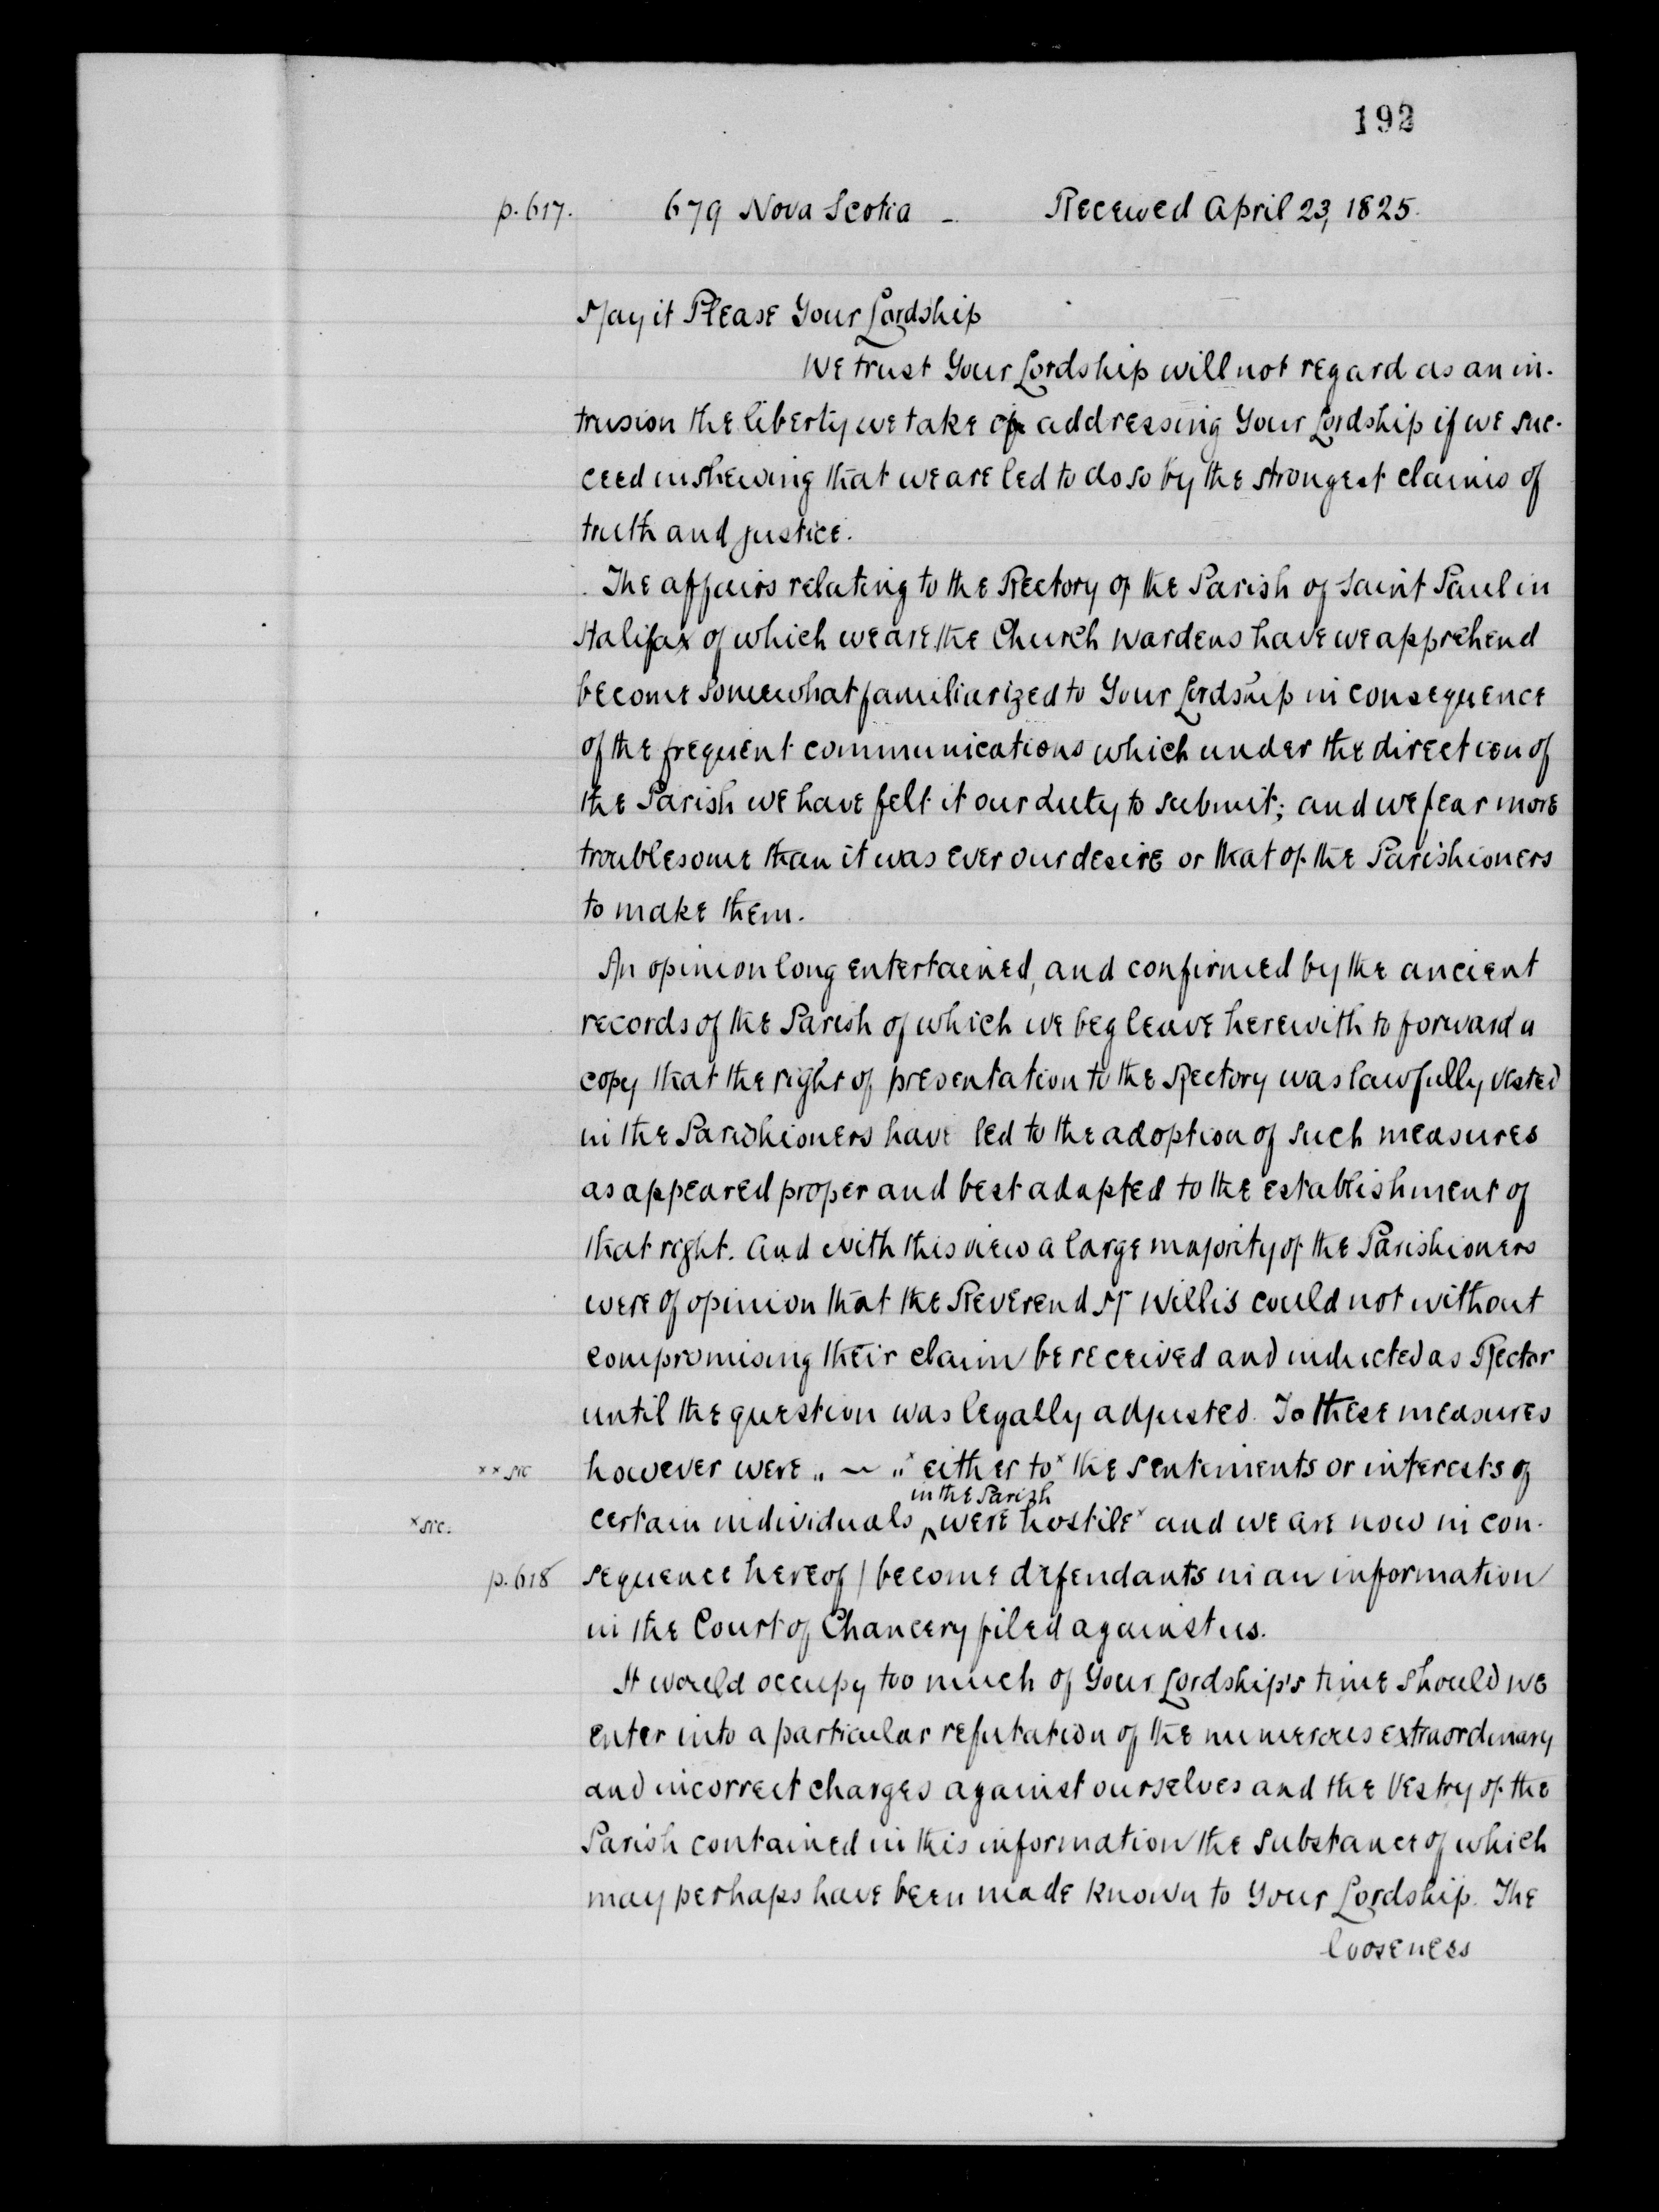 192
p.617. 679 Nova Scotia - Received April 23, 1825.
May it Please Your Lordship
We trust Your Lordship will not regard as an in-
trusion the liberty we take of addressing Your Lordship if we suc-
ceed in shewing that we are led to do so by the strongest claims of
truth and justice.
The affairs relating to the Rectory of the Parish of Saint Paul in
Halifax of which we are the Church Wardens have we apprehend
become somewhat familiarized to Your Lordship in consequence
of the frequent communications which under the direction of
the Parish we have felt it our duty to submit; and we fear more
troublesome than it was ever our desire or that of the Parishioners
to make them.
An opinion long entertained, and confirmed by the ancient
records of the Parish of which we beg leave herewith to forward a
copy that the right of presentation to the Rectory was lawfully vested
in the Parishioners have led to the adoption of such measures
as appeared proper and best adapted to the establishment of
that right. And with this view a large majority of the Parishioners
were of opinion that the Reverend Mr Willis could not without
compromising their claim be received and inducted as Rector
until the question was legally adjusted. To these measures
xx sic however were " ~ "x either to x the sentiments or interests of
in the Parish
x sic. certain individuals ^ were hostile x and we are now in con-
p.618 sequence hereof / become defendants in an information
in the Court of Chancery filed against us.
It would occupy too much of Your Lordship's time should we
enter into a particular refutation of the numerous extraordinary
and incorrect charges against ourselves and the Vestry of the
Parish contained in this information the substance of which
may perhaps have been made known to Your Lordship. The
looseness